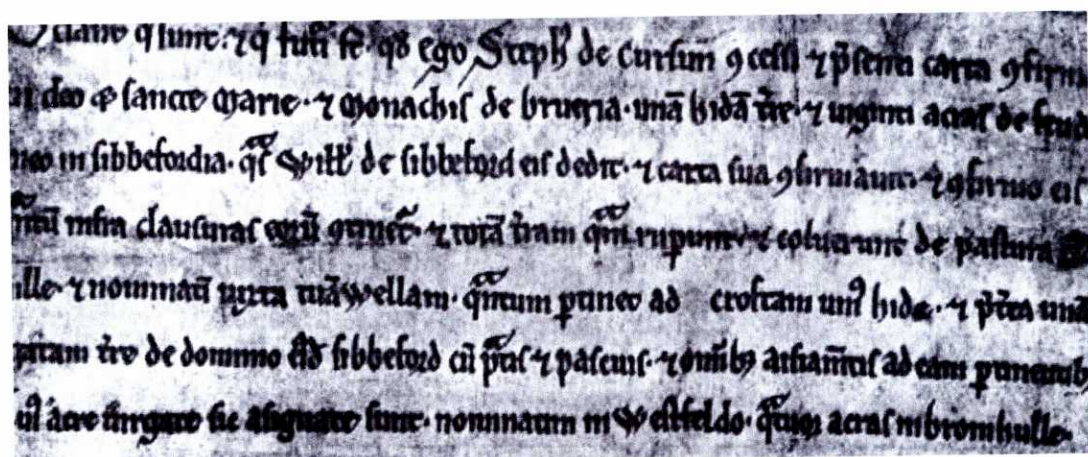 Sciant q̄ sunt ⁊ q̄ futi st̄ qđ ego Steph̄ de Cursun ꝯcessi ⁊ p̄senti carta ꝯfirm
deo ⁊ sancte Marie · ⁊ Monachis de brueria · unā hidā t̄re · ⁊ uiginti acras de
in sibbefordia · q̄s Will̄ de sibbeford eis dedit · ⁊ carta sua ꝯfirmauit · ⁊ ꝯfirmo eis
infra clausuras eoꝝ ꝯtinet̄ · ⁊ totā t̄ram q̄m rupunt · ⁊ coluerunt de pastura
ille · ⁊ nominati iuxta wellam · q̄ntum ꝑtinet ad croftam uniꝰ hide · ⁊ p̄t̄ea unā
gatam t̄re de dominio de sibbeford cū p̄tis ⁊ pascuis · ⁊ omībꝫ aisiam̄tis ad eam ꝑtinentib
acre sic asignate sunt · nominatim in Westfeldo · q̄tuor acras in bromhulle ·